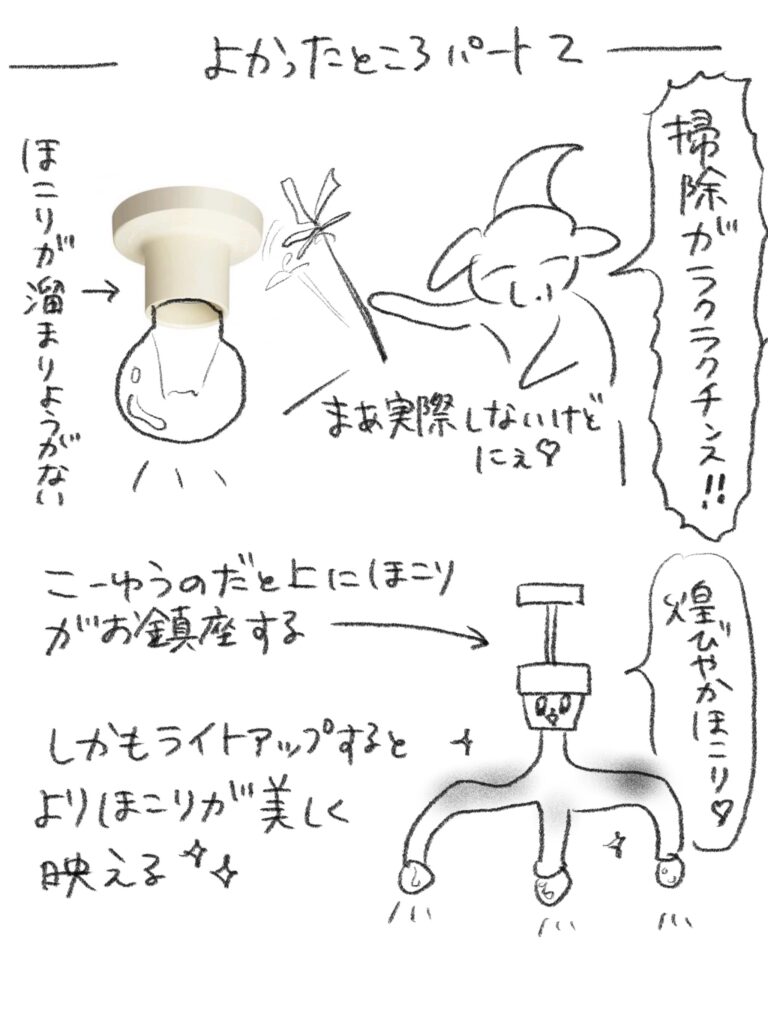 よかったところパート2
掃除がラクラクチンス!!
ほこりが溜まりようがない
まあ実際しないけど
にぇ♡
こーゆうのだと上にほこり
がお鎮座する
煌びやかほこり♡
しかもライトアップすると
よりほこりが美しく
映える